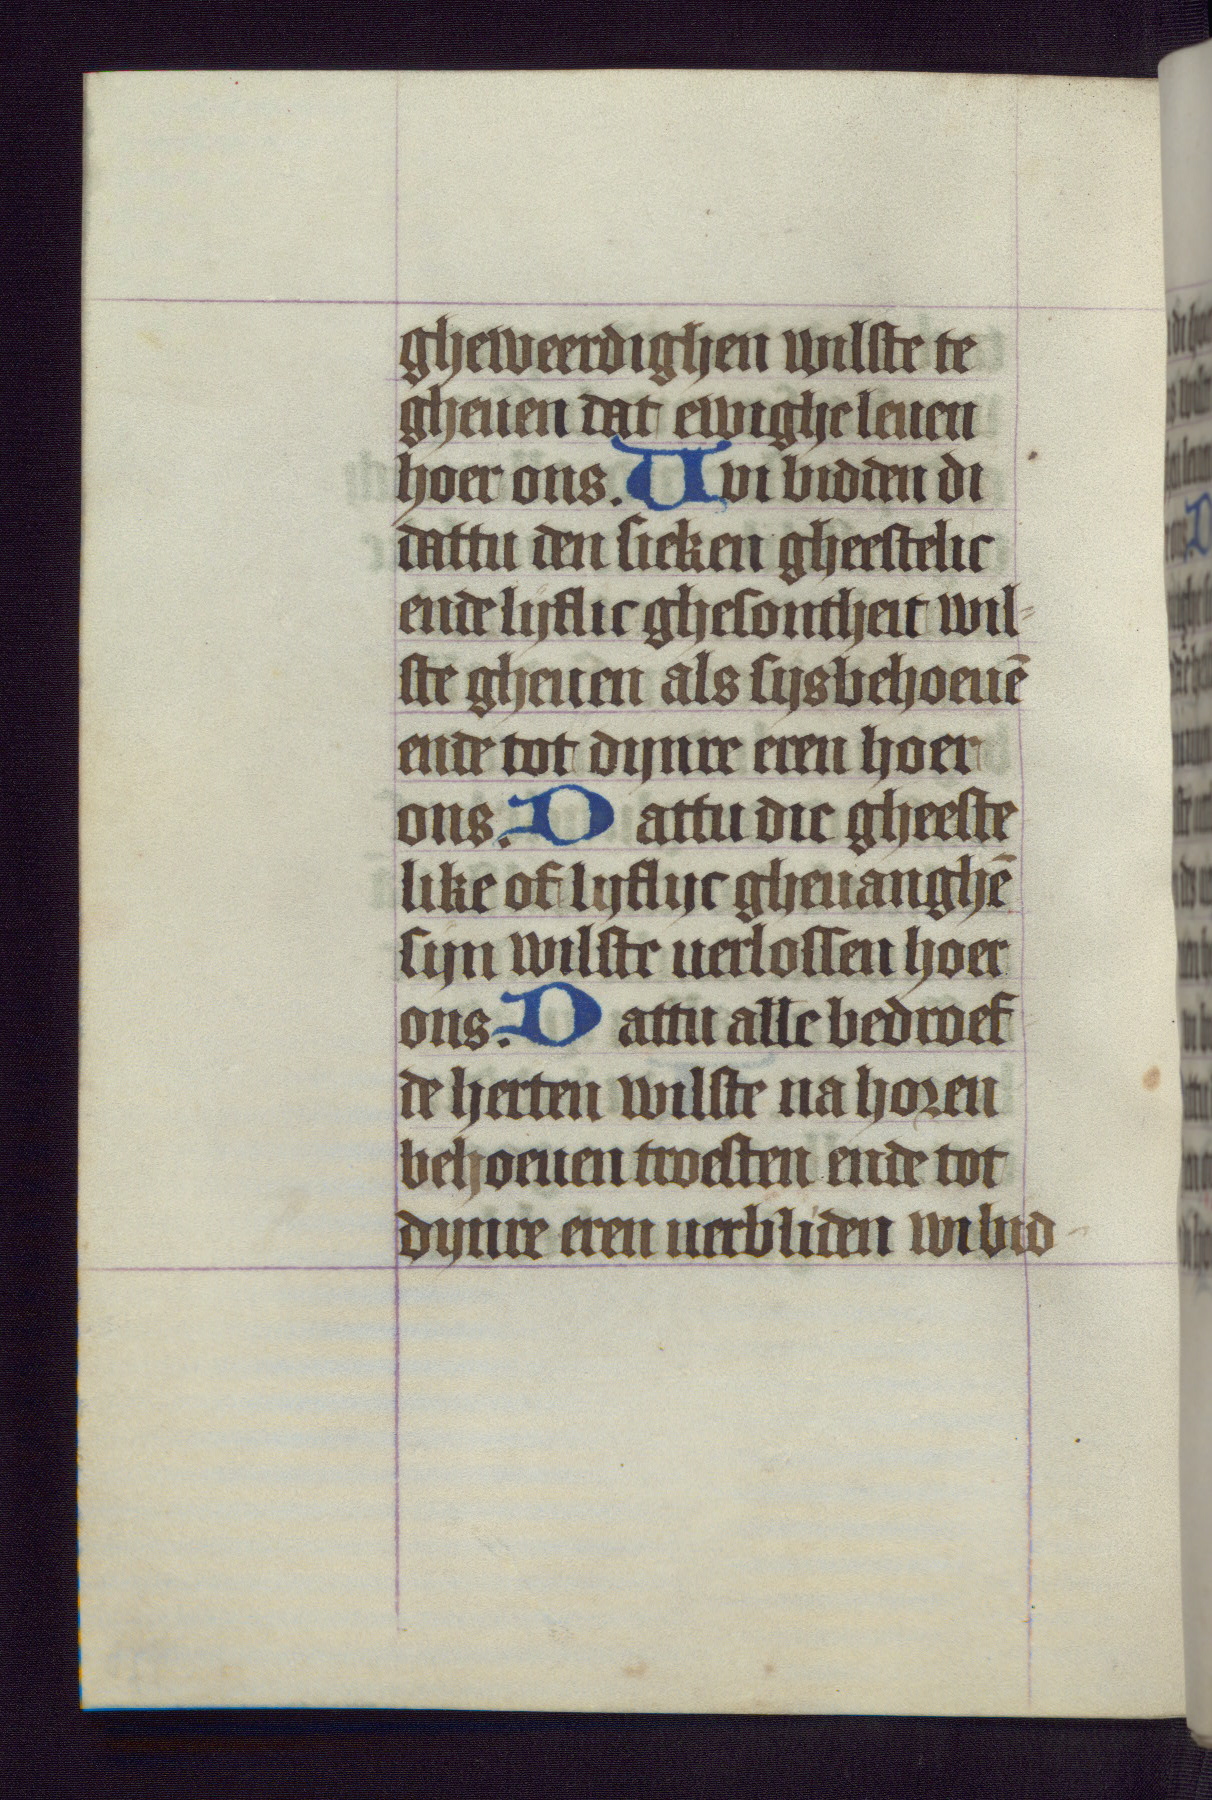 gheweerdighen wilste te
gheuen dat ewighe leuen
hoer ons. Uvi bidden di
dattu den sieken gheestelic
ende lijflic ghesontheit wil-
ste gheuen als sijs behoeuē
ende tot dijnre eren hoer
ons. Dattu die gheeste
like of lijflijc gheuanghē
sijn wilste uerlossen hoer
ons. Dattu alle bedroef
de herten wilste na horen
behoeuen troesten ende tot
dijnre eren uerbliden wi bid-